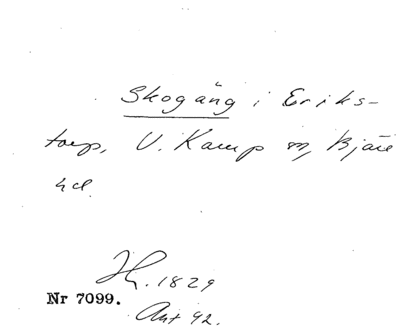 Skogäng i Eriks-
torp, V. Karup sn, Bjäre
hd.
H. 1829
Nr 7099.
Ant 92.